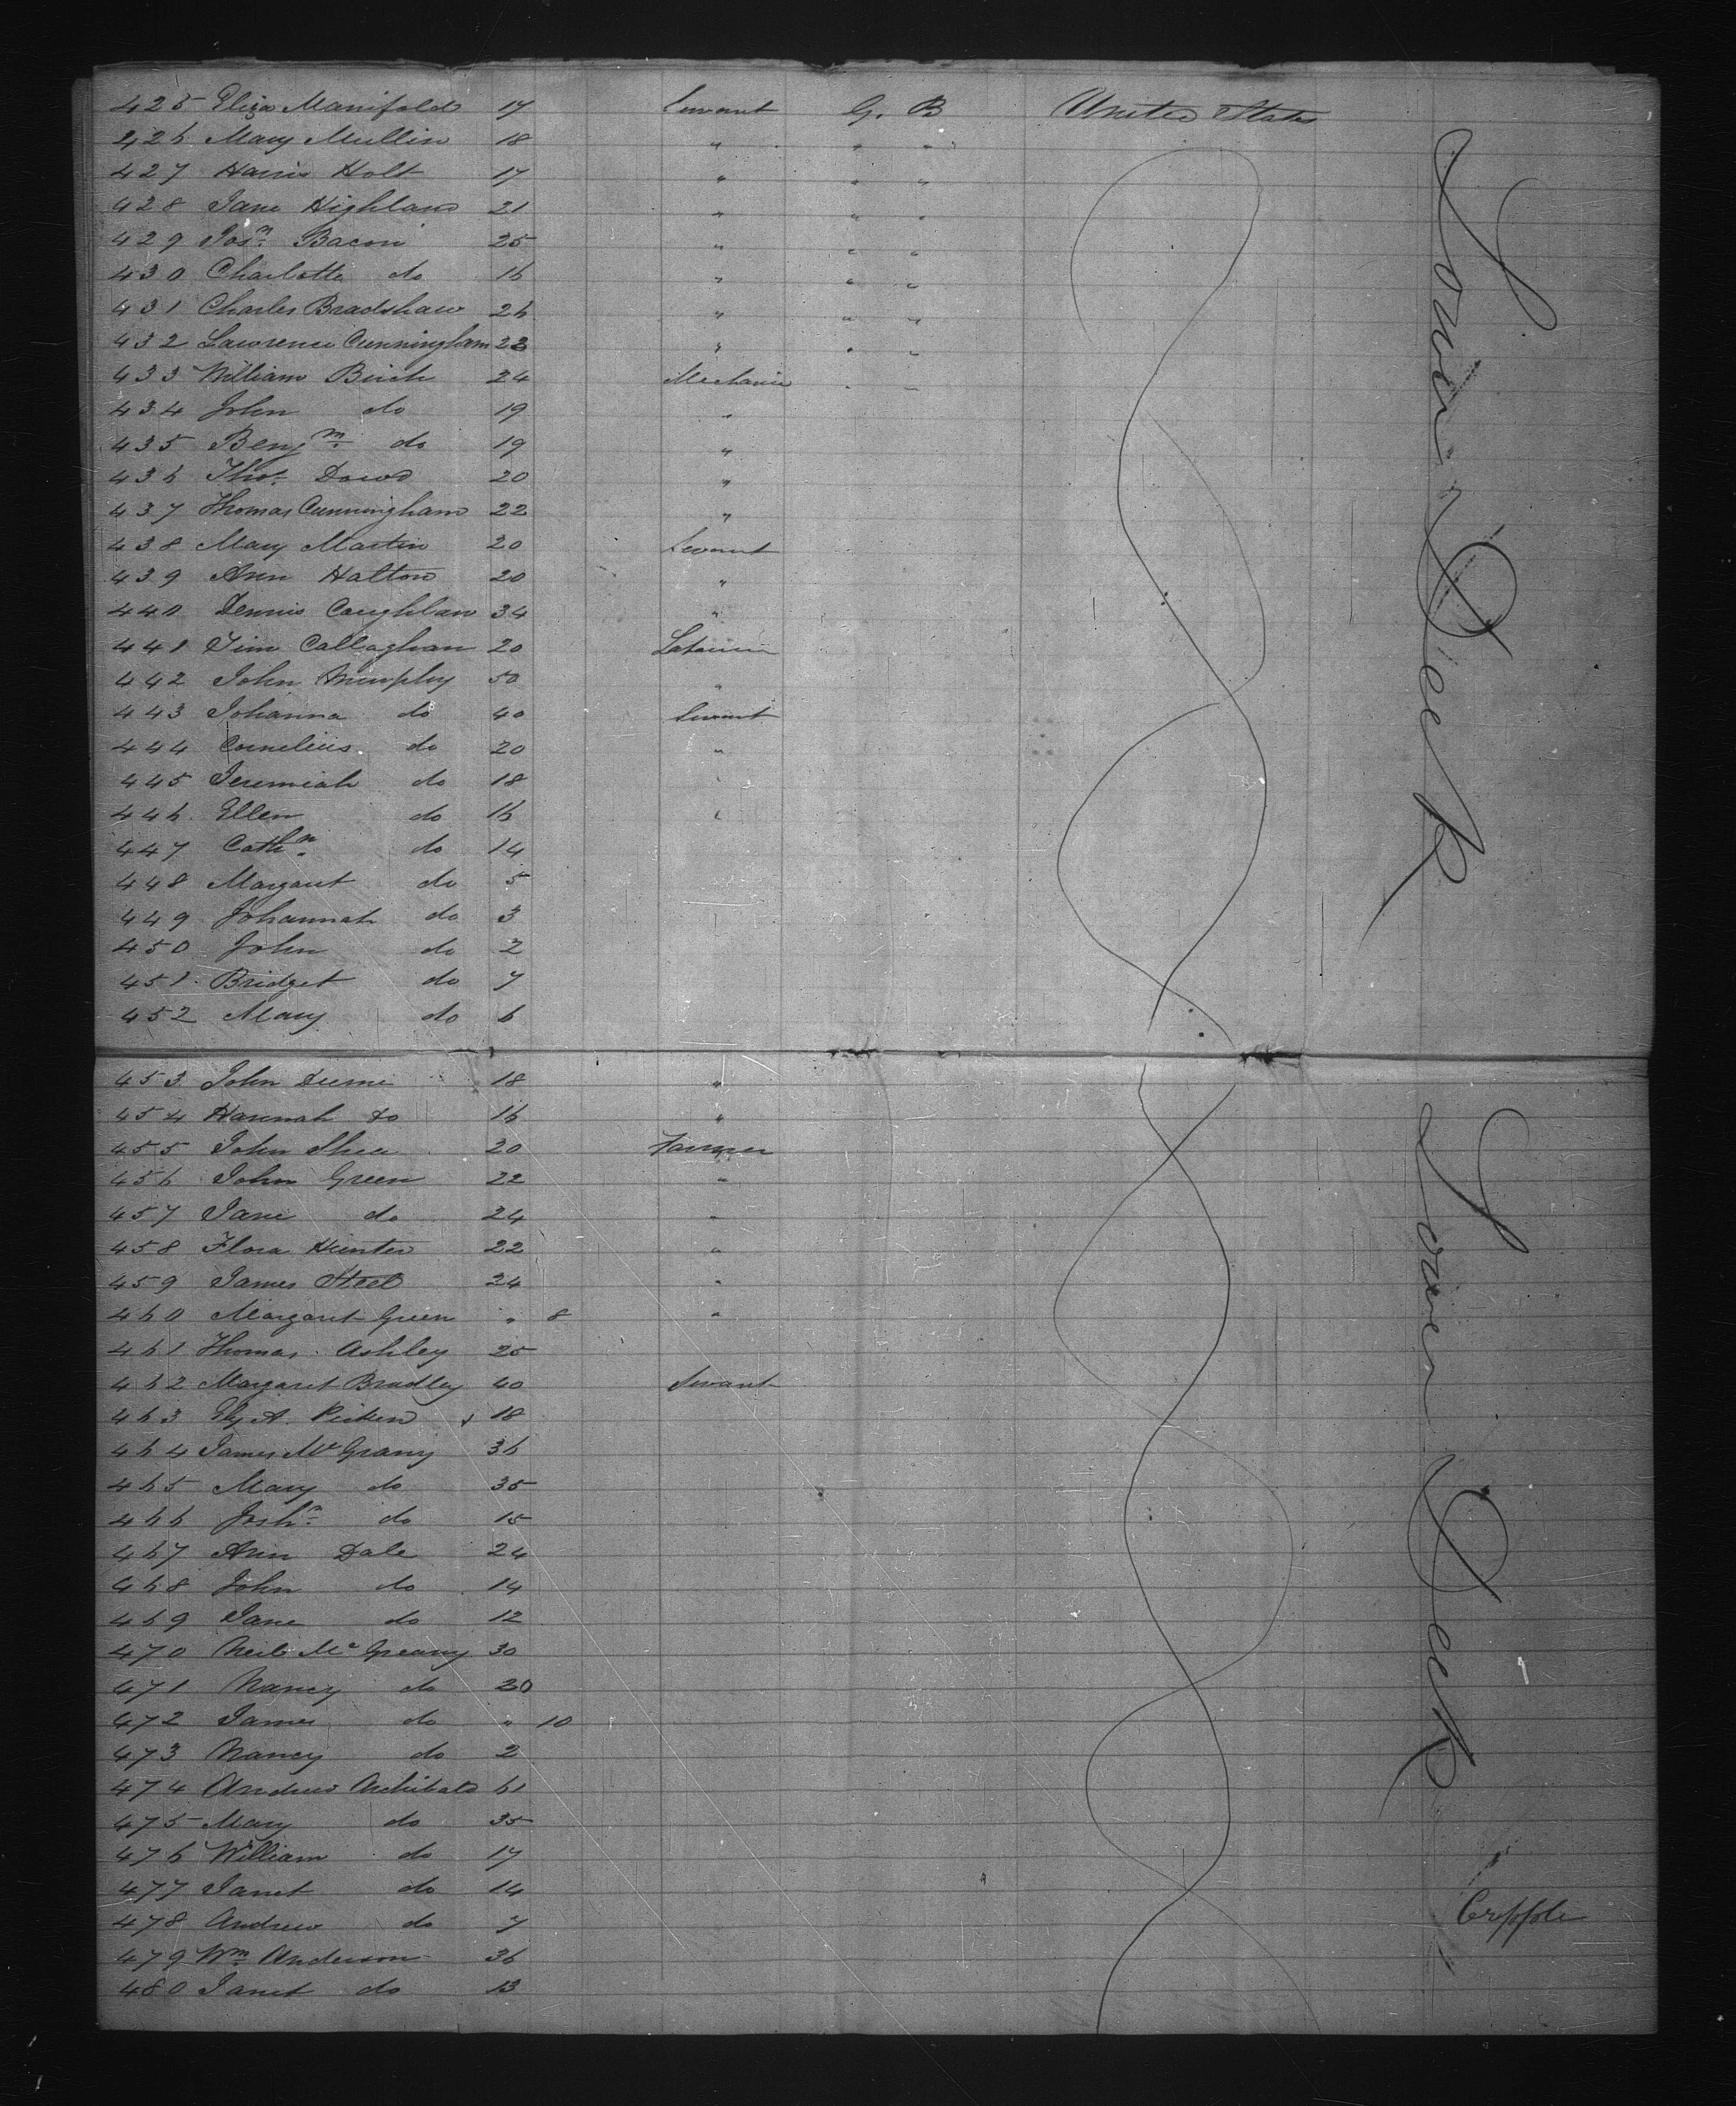 425 Eliza Manifold 17 Servant G. B United States
426 Mary Mullin 18 " " "
427 Harris Holt 17 " " "
428 Jane Highland 21 " " "
429 Josn. Bacon 25 " " "
430 Charlotte do 16 " " "
431 Charles Bradshaw 26 " " "
432 Lawrence Cunningham 23 " " "
433 William Birch 24 Mechanic " "
434 John do 19 "
435 Benjm. do 19 "
436 Thos. Dowd 20 "
437 Thomas Cunningham 22 "
438 Mary Martin 20 Servant
439 Ann Halton 20 "
440 Dennis Coughlan 34 "
441 Tim Callaghan 20 Labourer
442 John Murphy 50 "
443 Johanna do 40 Servant
444 Cornelius do 20 "
445 Jeremiah do 18 "
446 Ellen do 16 "
447 Cathn. do 14
448 Margaret do 5
449 Johannah do 3
450 John do 2
451 Bridget do 7
452 Mary do 6
Lower Deck
453 John 18 "
454 Hannah do 16 "
455 John Shea 20 Farmer
456 John Green 22 "
457 Jane do 24 "
458 Flora Hunter 22 "
459 James Steel 24 "
460 Margaret Green " 8 "
461 Thomas Ashley 25
462 Margaret Bradley 40 Servant
463 A. Picken 18
464 James Mc Grany 36
465 Mary do 35
466 do 15
467 Ann Dale 24
468 John do 14
469 Jane do 12
470 Neil Mc Greany 30
471 Nancy do 20
472 James do " 10
473 Nancy do 2
474 Andrew Archibald 61
475 Mary do 35
476 William do 17
477 Janet do 14
478 Andrew do 7 Cripple
479 Wm. Anderson 36
480 Janet do 13
Lower Deck